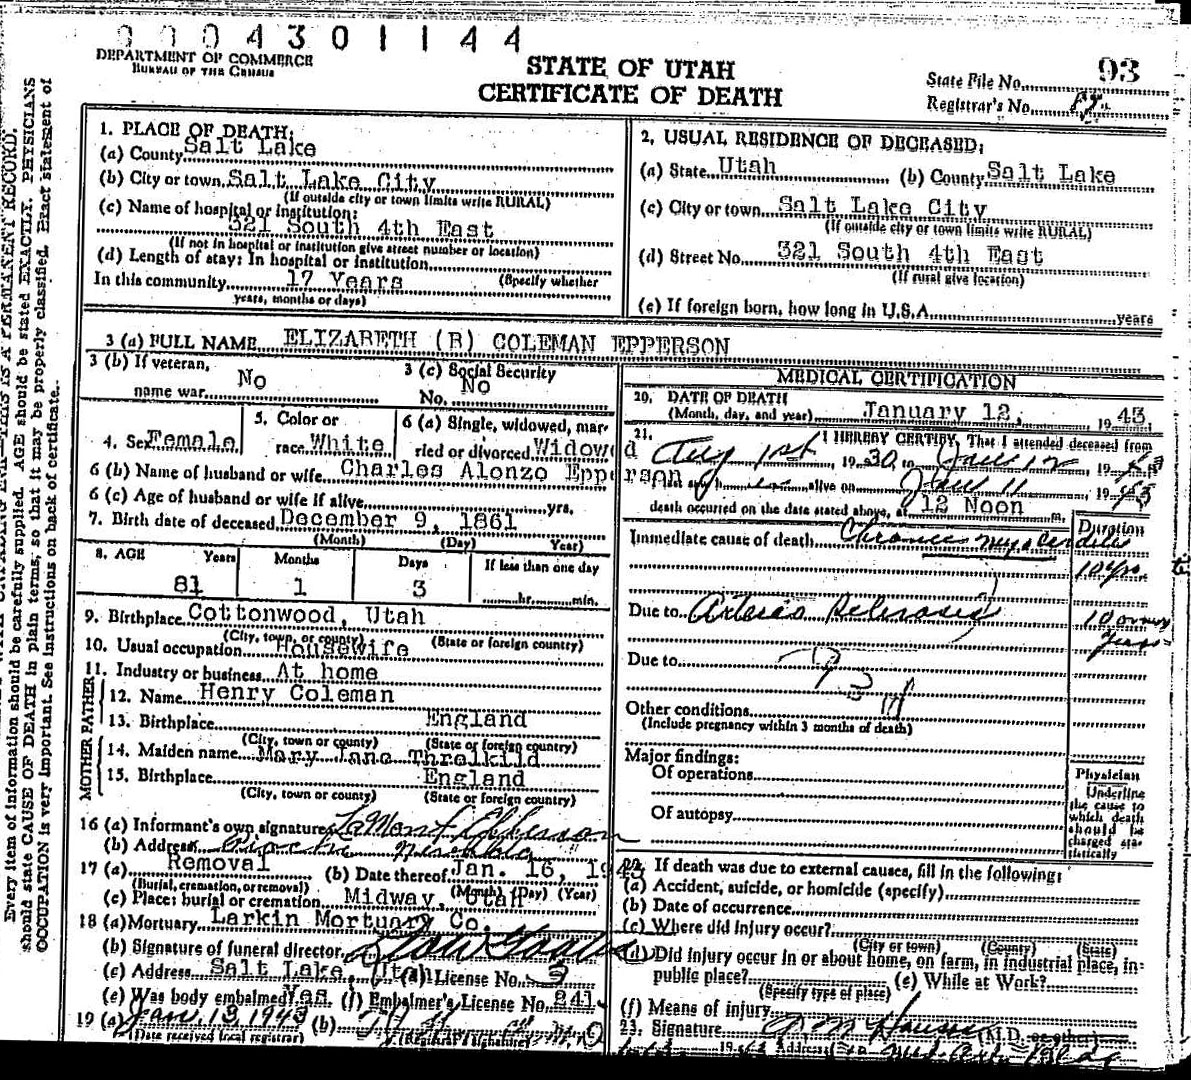 0004301144
DEPARTMENT OF COMMERCE
BUREAU OF THE CENSUS
STATE OF UTAH
CERTIFICATE OF DEATH
State File No. 93
Registrar's No.
Every item of information should be carefully supplied. AGE should be stated EXACTLY. PHYSICIANS
should state CAUSE OF DEATH in plain terms, so that it may be properly classified. Exact statement of
OCCUPATION is very important. See instructions on back of certificate.
1. PLACE OF DEATH:
(a) County Salt Lake
(b) City or town Salt Lake City
(If outside city or town limits write RURAL)
(c) Name of hospital or institution:
321 South 4th East
(If not in hospital or institution give street number or location)
(d) Length of stay: In hospital or institution
In this community 17 Years (Specify whether
years, months or days)
2. USUAL RESIDENCE OF DECEASED:
(a) State Utah (b) County Salt Lake
(c) City or town Salt Lake City
(If outside city or town limits write RURAL)
(d) Street No. 321 South 4th East
(If rural give location)
(e) If foreign born, how long in U.S.A. years
3 (a) FULL NAME ELIZABETH (B) COLEMAN EPPERSON
3 (b) If veteran,
name war No
3 (c) Social Security
No. No
4. Sex Female
5. Color or
race White
6 (a) Single, widowed, mar-
ried or divorced Widowed
6 (b) Name of husband or wife Charles Alonzo Epperson
6 (c) Age of husband or wife if alive yrs.
7. Birth date of deceased December 9, 1861
(Month) (Day) Year)
8. AGE Years Months Days If less than one day
81 1 3 hr. min.
9. Birthplace Cottonwood, Utah
(City, town, or county) (State or foreign country)
10. Usual occupation Housewife
11. Industry or business At home
FATHER
12. Name Henry Coleman
13. Birthplace England
(City, town or county) (State or foreign country)
MOTHER
14. Maiden name Mary Jane Threlkild
15. Birthplace England
(City, town or county) (State or foreign country)
16 (a) Informant's own signature LaMont Epperson
(b) Address Pioche Nevada
17 (a) Removal (b) Date thereof Jan. 16, 1943
(Burial, cremation, or removal) (Month) (Day) (Year)
(c) Place: burial or cremation Midway, Utah
18 (a) Mortuary Larkin Mortuary Co.
(b) Signature of funeral director
(c) Address Salt Lake, Utah (d) License No. 3
(e) Was body embalmed? Yes (f) Embalmer's License No. 241
19 (a) Jan. 13, 1943 (b) M.D.
(Date received local registrar) (Registrar's signature)
MEDICAL CERTIFICATION
20. DATE OF DEATH
(Month, day, and year) January 12, 1943
21. I HEREBY CERTIFY, That I attended deceased from
Aug 1st, 1930 to Jan 12 1943
alive on Jan 11 1943
death occurred on the date stated above, at 12 Noon m.
Duration
Immediate cause of death Chronic myocarditis
10 yrs.
Due to Arterio Sclerosis 10 or more
years
Due to
Other conditions
(Include pregnancy within 3 months of death)
Major findings:
Of operations
Of autopsy
Physician
Underline
the cause to
which death
should be
charged sta-
tistically
22. If death was due to external causes, fill in the following:
(a) Accident, suicide, or homicide (specify)
(b) Date of occurrence
(c) Where did injury occur?
(City or town) (County) (State)
(d) Did injury occur in or about home, on farm, in industrial place, in
public place? (e) While at Work?
(Specify type of place)
(f) Means of injury
23. Signature (M.D. or other)
Address Med. Arts Bldg